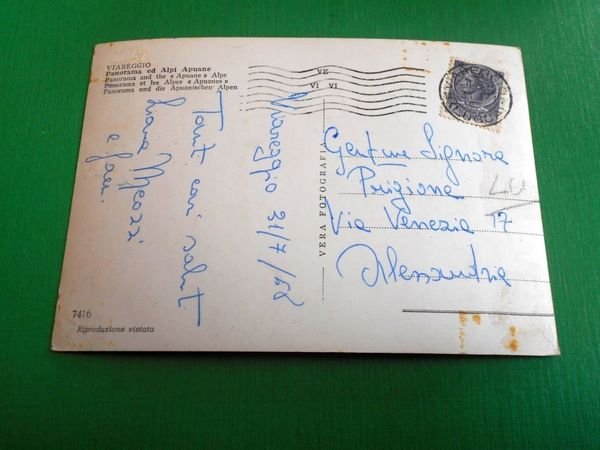 VIAREGGIO
Panorama ed Alpi Apuane
Panorama and the « Apuane » Alps
Panorama et les Alpes « Apuanes »
Panorama und die Apuanischen Alpen
Viareggio 31/7/68
Tanti cari saluti
e fam.
7416
Riproduzione vietata
VERA FOTOGRAFIA
VE
VI VI
Gent.ma Signora
Prigione
Via Venezia 17
Alessandria